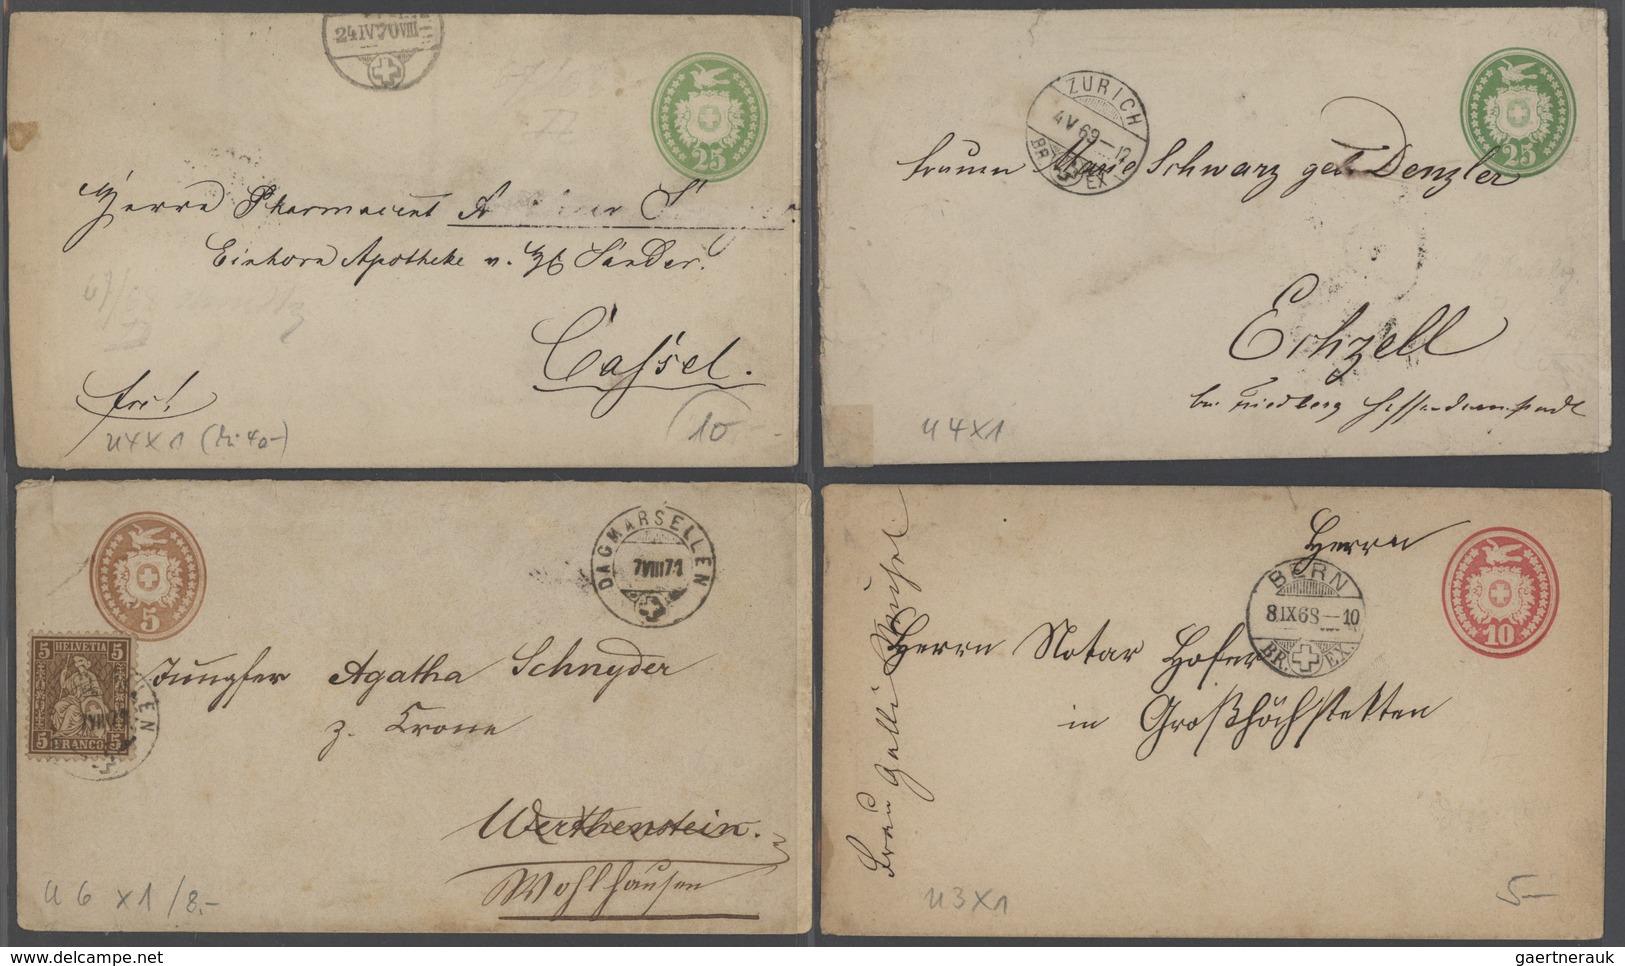 24 IV 70 VIII
25
Herrn Pharmacent A
Einhorn Apotheke v. Sander.
Cassel.
frei!
U4X1 (Mi 40-)
10
ZÜRICH
4 V 69 - 12
BR. EX
25
Frauen Marie Schwarz geb. Denzler
Echzell
bei Friedberg Hessen-Darmstadt
U4X1
5
DAGMARSELLEN
7 VIII 71
5 HELVETIA 5
5 FRANCO 5
Jungfer Agatha Schnyder
z. Krone
Werthenstein.
Wohlhausen
U6 X1 /8.-
Herrn
10
BERN
8 IX 68 - 10
BR. EX.
Herrn Notar Hofer
in Großhöchstetten
Frau Galli
U3X1
5-
delcampe.net
gaertnerauk